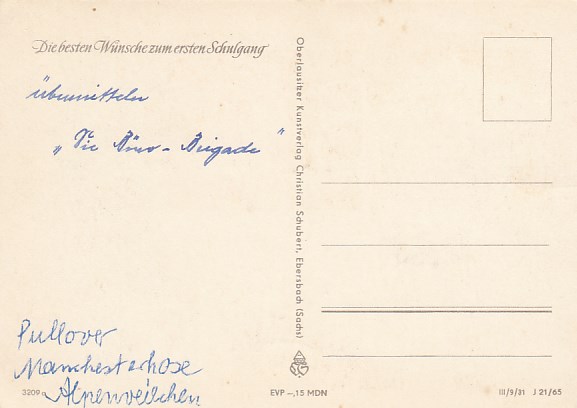 Die besten Wünsche zum ersten Schulgang
übermitteln
„Die Büro-Brigade"
Pullover
Manchesterhose
Alpenveilchen
3209a
Oberlausitzer Kunstverlag Christian Schubert, Ebersbach (Sachs)
EVP -,15 MDN
III/9/31 J 21/65